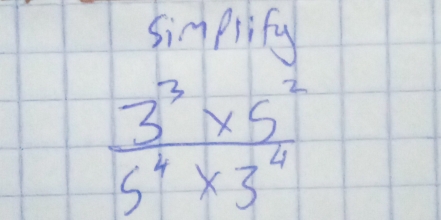 simplify
3³ × 5²
5⁴ × 3⁴